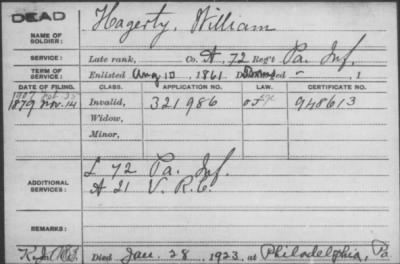 DEAD
Hagerty, William
NAME OF SOLDIER:
SERVICE: Late rank, Co. A, 72 Reg't Pa. Inf.
TERM OF SERVICE: Enlisted Aug 10, 1861. , 1
DATE OF FILING. CLASS. APPLICATION NO. LAW. CERTIFICATE NO.
1907
1879 Nov. 14 Invalid, 321986 948613
Widow,
Minor,
ADDITIONAL SERVICES: L 72 Pa. Inf.
A 21 V.R.C.
REMARKS:
Died Jan. 28, 1923, at Philadelphia, Pa